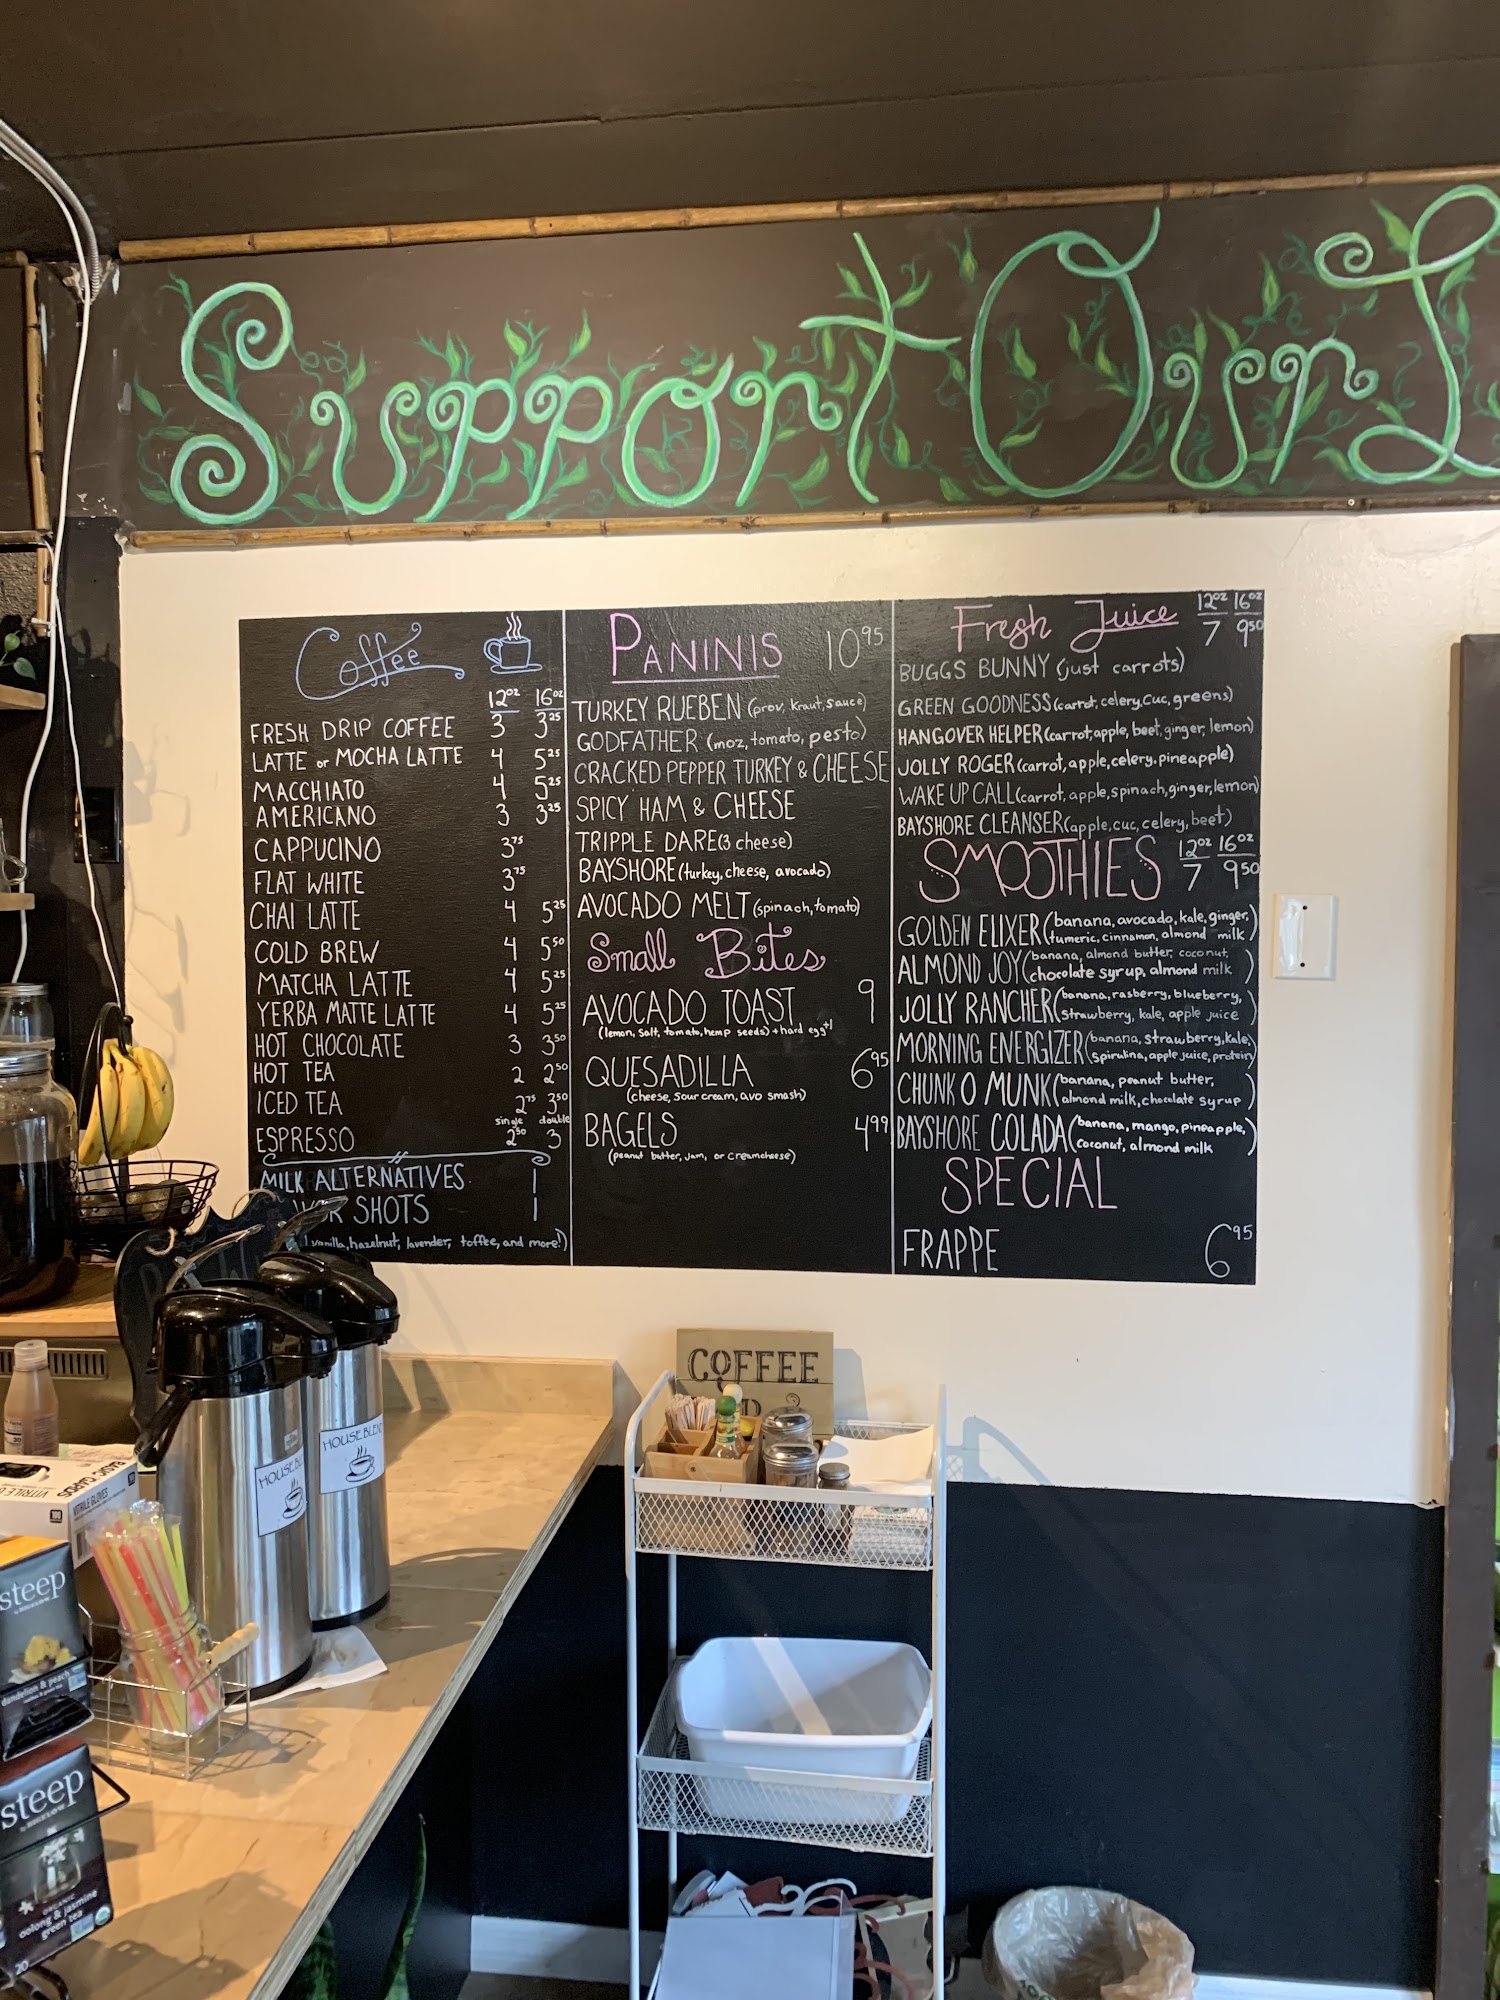 Support Our L
Coffee
12oz 16oz
FRESH DRIP COFFEE 3 3.25
LATTE or MOCHA LATTE 4 5.25
MACCHIATO 4 5.25
AMERICANO 3 3.25
CAPPUCINO 3.75
FLAT WHITE 3.75
CHAI LATTE 4 5.25
COLD BREW 4 5.50
MATCHA LATTE 4 5.25
YERBA MATTE LATTE 4 5.25
HOT CHOCOLATE 3 3.50
HOT TEA 2 2.50
ICED TEA 2.75 3.50
single double
ESPRESSO 2.50 3
MILK ALTERNATIVES 1
SHOTS 1
vanilla, hazelnut, lavender, toffee, and more!)
PANINIS 10.95
TURKEY RUEBEN (prov, kraut, sauce)
GODFATHER (moz, tomato, pesto)
CRACKED PEPPER TURKEY & CHEESE
SPICY HAM & CHEESE
TRIPPLE DARE (3 cheese)
BAYSHORE (turkey, cheese, avocado)
AVOCADO MELT (spinach, tomato)
Small Bites
AVOCADO TOAST 9
(lemon, salt, tomato, hemp seeds) + hard egg +1
QUESADILLA 6.95
(cheese, sour cream, avo smash)
BAGELS 4.99
(peanut butter, jam, or creamcheese)
Fresh Juice 12oz 16oz
7 9.50
BUGGS BUNNY (just carrots)
GREEN GOODNESS (carrot, celery, cuc, greens)
HANGOVER HELPER (carrot, apple, beet, ginger, lemon)
JOLLY ROGER (carrot, apple, celery, pineapple)
WAKE UP CALL (carrot, apple, spinach, ginger, lemon)
BAYSHORE CLEANSER (apple, cuc, celery, beet)
SMOOTHIES 12oz 16oz
7 9.50
GOLDEN ELIXER (banana, avocado, kale, ginger,
tumeric, cinnamon, almond milk)
ALMOND JOY (banana, almond butter, coconut,
chocolate syrup, almond milk)
JOLLY RANCHER (banana, rasberry, blueberry,
strawberry, kale, apple juice)
MORNING ENERGIZER (banana, strawberry, kale,
spirulina, apple juice, protein)
CHUNK O MUNK (banana, peanut butter,
almond milk, chocolate syrup)
BAYSHORE COLADA (banana, mango, pineapple,
coconut, almond milk)
SPECIAL
FRAPPE 6.95
COFFEE
HOUSE BLEND
HOUSE BL
VITRILE GLOVES
100
steep
dandelion & peach
steep
BY BIGELOW
ORGANIC
oolong & jasmine
green tea
20